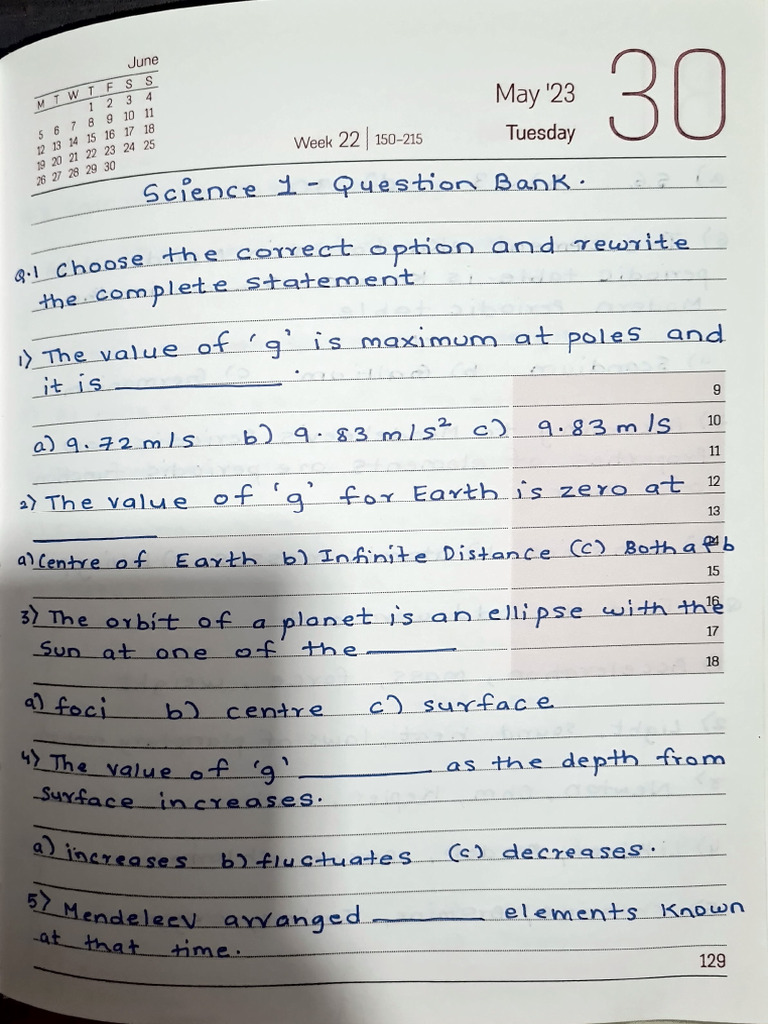 June
M T W T F S S
1 2 3 4
5 6 7 8 9 10 11
12 13 14 15 16 17 18
19 20 21 22 23 24 25
26 27 28 29 30
May '23
30
Tuesday
Week 22 | 150-215
Science 1 - Question Bank.
Q.1 Choose the correct option and rewrite
the complete statement
1) The value of 'g' is maximum at poles and
it is ________.
9
a) 9.72 m/s b) 9.83 m/s² c) 9.83 m/s
10
11
2) The value of 'g' for Earth is zero at
12
________
13
a) Centre of Earth b) Infinite Distance (c) Both a & b
15
3) The orbit of a planet is an ellipse with the
16
Sun at one of the ________
17
18
a) foci b) centre c) surface
4) The value of 'g' ________ as the depth from
surface increases.
a) increases b) fluctuates (c) decreases.
5) Mendeleev arranged ________ elements known
at that time.
129